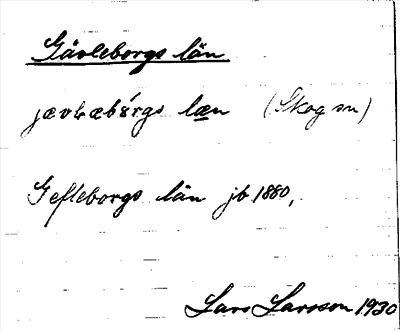 Gävleborgs län
jævləbórgs læn (Skog sn)
Gefleborgs län jb 1880,
Lars Larsson 1930